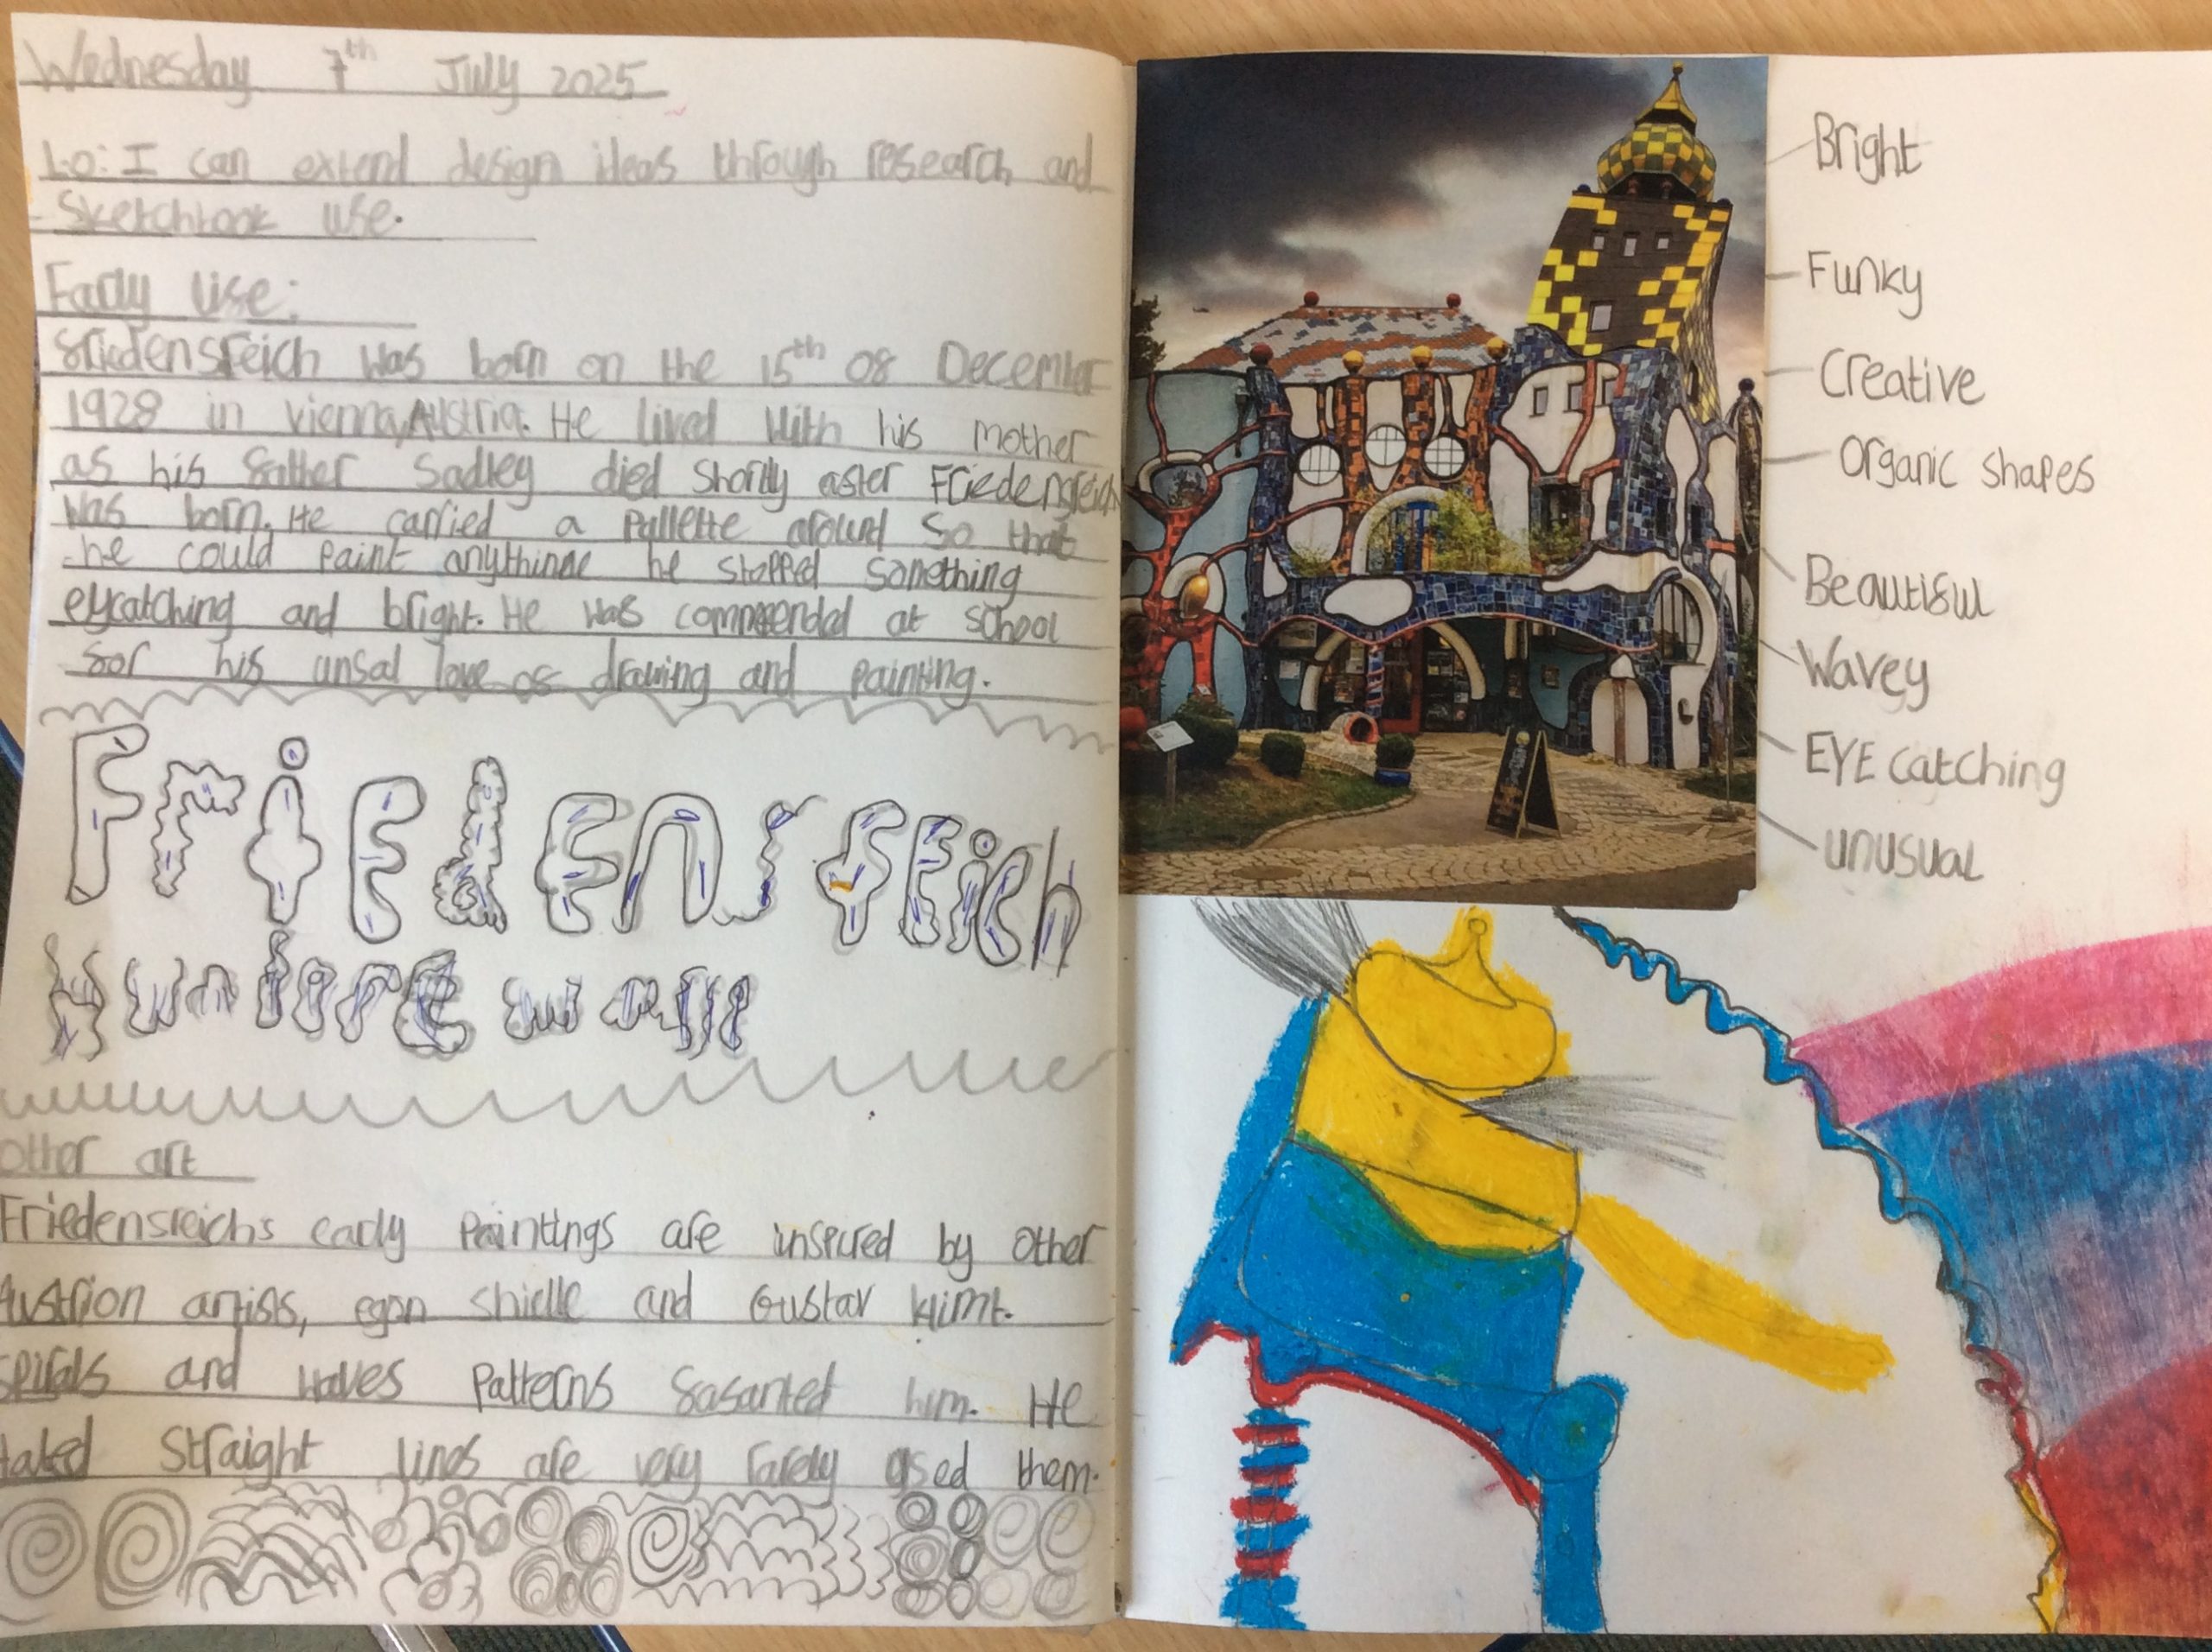 Wednesday 7th July 2025
Lo: I can extend design ideas through research and
Sketchbook use.
Early life:
friedensreich was born on the 15th of December
1928 in Vienna, Austria. He lived with his mother
as his father sadley died shortly after Friedensreich
was born. He carried a pallette around so that
he could paint anythinge he stopped something
eycatching and bright. He was commended at school
for his unsal love of drawing and painting.
FriEdEnsrEich
Other art
Friedensreichs early paintings are inspired by other
Austrion artists, egon shielle and Gustav klimt.
Spirals and waves patterns fasanted him. He
hated straight lines are very rarely used them.
Bright
Funky
Creative
Organic shapes
Beautiful
Wavey
EYE catching
unusual